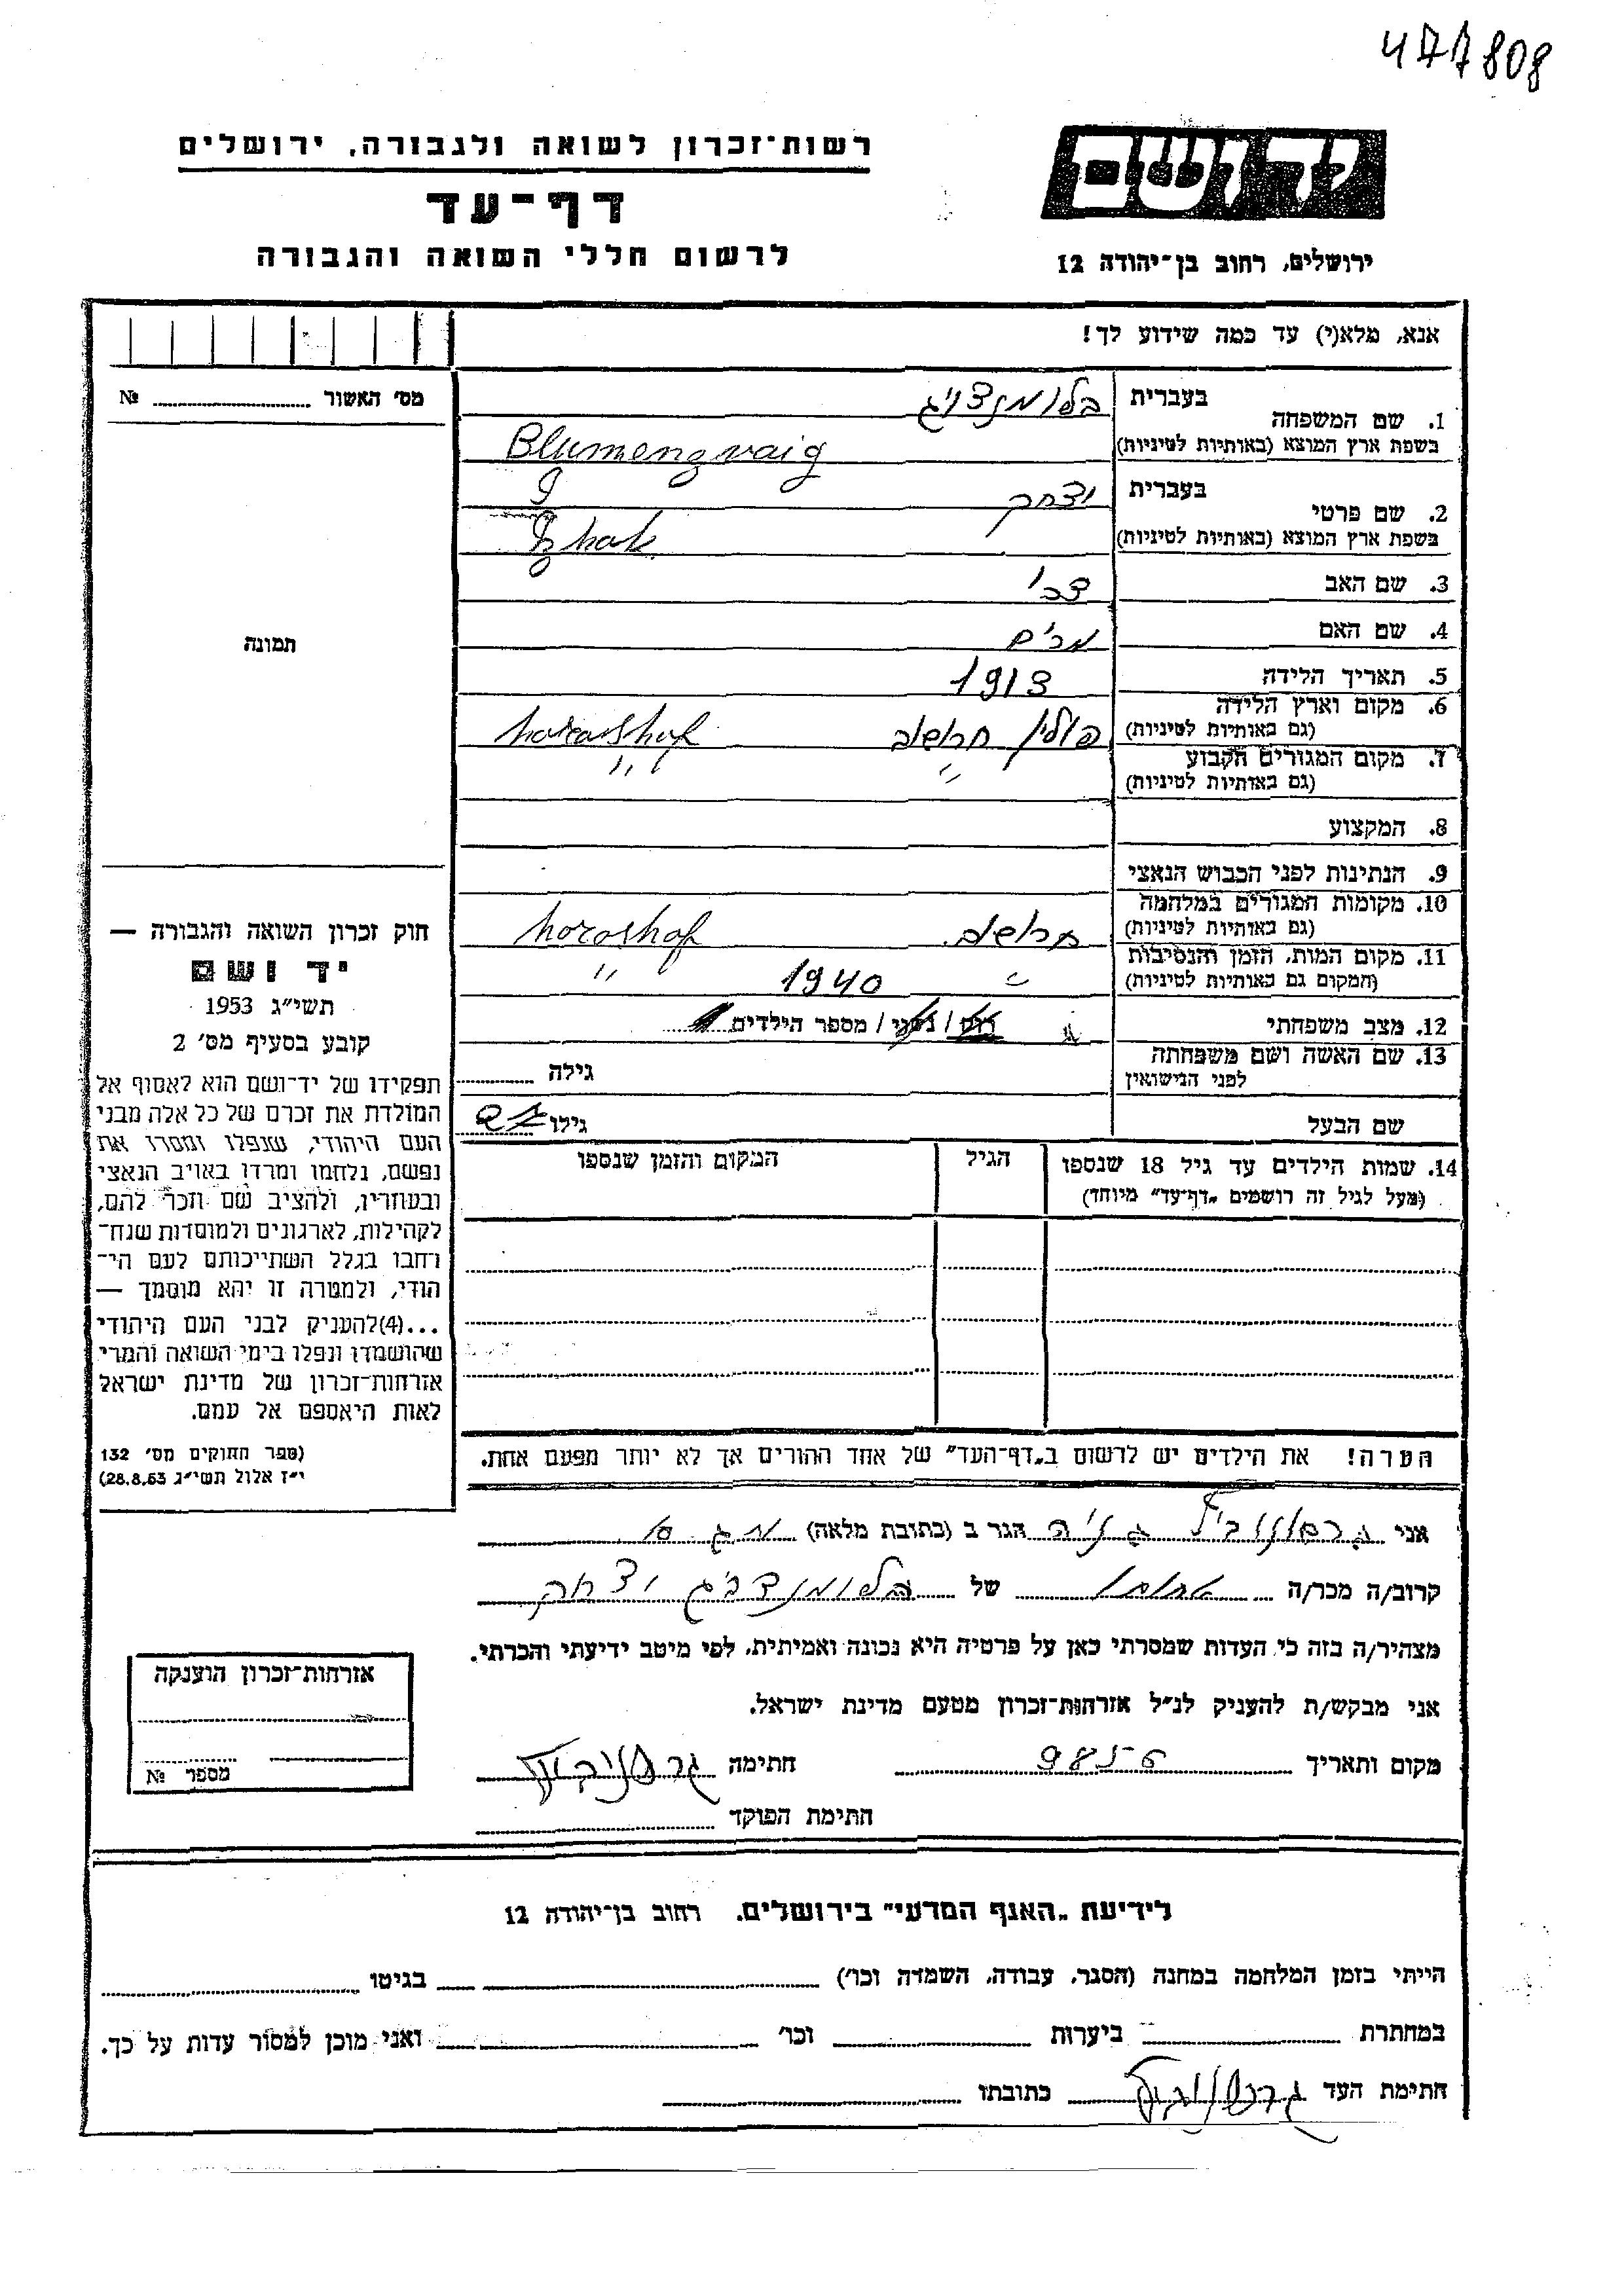 477808
רשות־זכרון לשואה ולגבורה, ירושלים
יד ושם
דף־עד
לרשום חללי השואה והגבורה
ירושלים, רחוב בן־יהודה 12
אנא, מלא(י) עד כמה שידוע לך!
מס׳ האשור № 
1. שם המשפחה
בעברית
בלומנצויג
בשפת ארץ המוצא (באותיות לטיניות)
Blumengvaig
2. שם פרטי
בעברית
יצחק
בשפת ארץ המוצא (באותיות לטיניות)
3. שם האב צבי
4. שם האם מרים
תמונה
5. תאריך הלידה 1913
6. מקום וארץ הלידה
(גם באותיות לטיניות)
פולין
7. מקום המגורים הקבוע
(גם באותיות לטיניות)
" "
8. המקצוע
9. הנתינות לפני הכבוש הנאצי
10. מקומות המגורים במלחמה
(גם באותיות לטיניות)
horoshof
11. מקום המות, הזמן והנסיבות
(המקום גם באותיות לטיניות)
" 1940 "
12. מצב משפחתי
רוק / נשוי / מספר הילדים
13. שם האשה ושם משפחתה
לפני הנישואין
גילה
שם הבעל
גילו 27
14. שמות הילדים עד גיל 18 שנספו
(מעל לגיל זה רושמים „דף־עד" מיוחד)
הגיל
המקום והזמן שנספו
הערה! את הילדים יש לרשום ב„דף־העד" של אחד ההורים אך לא יותר מפעם אחת.
חוק זכרון השואה והגבורה —
יד ושם
תשי״ג 1953
קובע בסעיף מס׳ 2
תפקידו של יד־ושם הוא לאסוף אל
המולדת את זכרם של כל אלה מבני
העם היהודי, שנפלו ומסרו את
נפשם, נלחמו ומרדו באויב הנאצי
ובעוזריו, ולהציב שם וזכר להם,
לקהילות, לארגונים ולמוסדות שנח־
רחבו בגלל השתייכותם לעם הי־
הודי, ולמטרה זו יהא מוסמך —
...(4)להעניק לבני העם היהודי
שהושמדו ונפלו בימי השואה והמרי
אזרחות־זכרון של מדינת ישראל
לאות היאספם אל עמם.
(ספר החוקים מס׳ 132
י״ז אלול תשי״ג 28.8.53)
אני הגר ב (כתובת מלאה)
קרוב/ה מכר/ה של יצחק
מצהיר/ה בזה כי העדות שמסרתי כאן על פרטיה היא נכונה ואמיתית, לפי מיטב ידיעתי והכרתי.
אני מבקש/ת להעניק לנ״ל אזרחות־זכרון מטעם מדינת ישראל.
מקום ותאריך חתימה
חתימת הפוקד
אזרחות־זכרון הוענקה
מספר №
לידיעת „האגף המדעי" בירושלים, רחוב בן־יהודה 12
הייתי בזמן המלחמה במחנה (הסגר, עבודה, השמדה וכו׳) בגיטו
במחתרת ביערות וכו׳ ואני מוכן למסור עדות על כך.
חתימת העד כתובתו